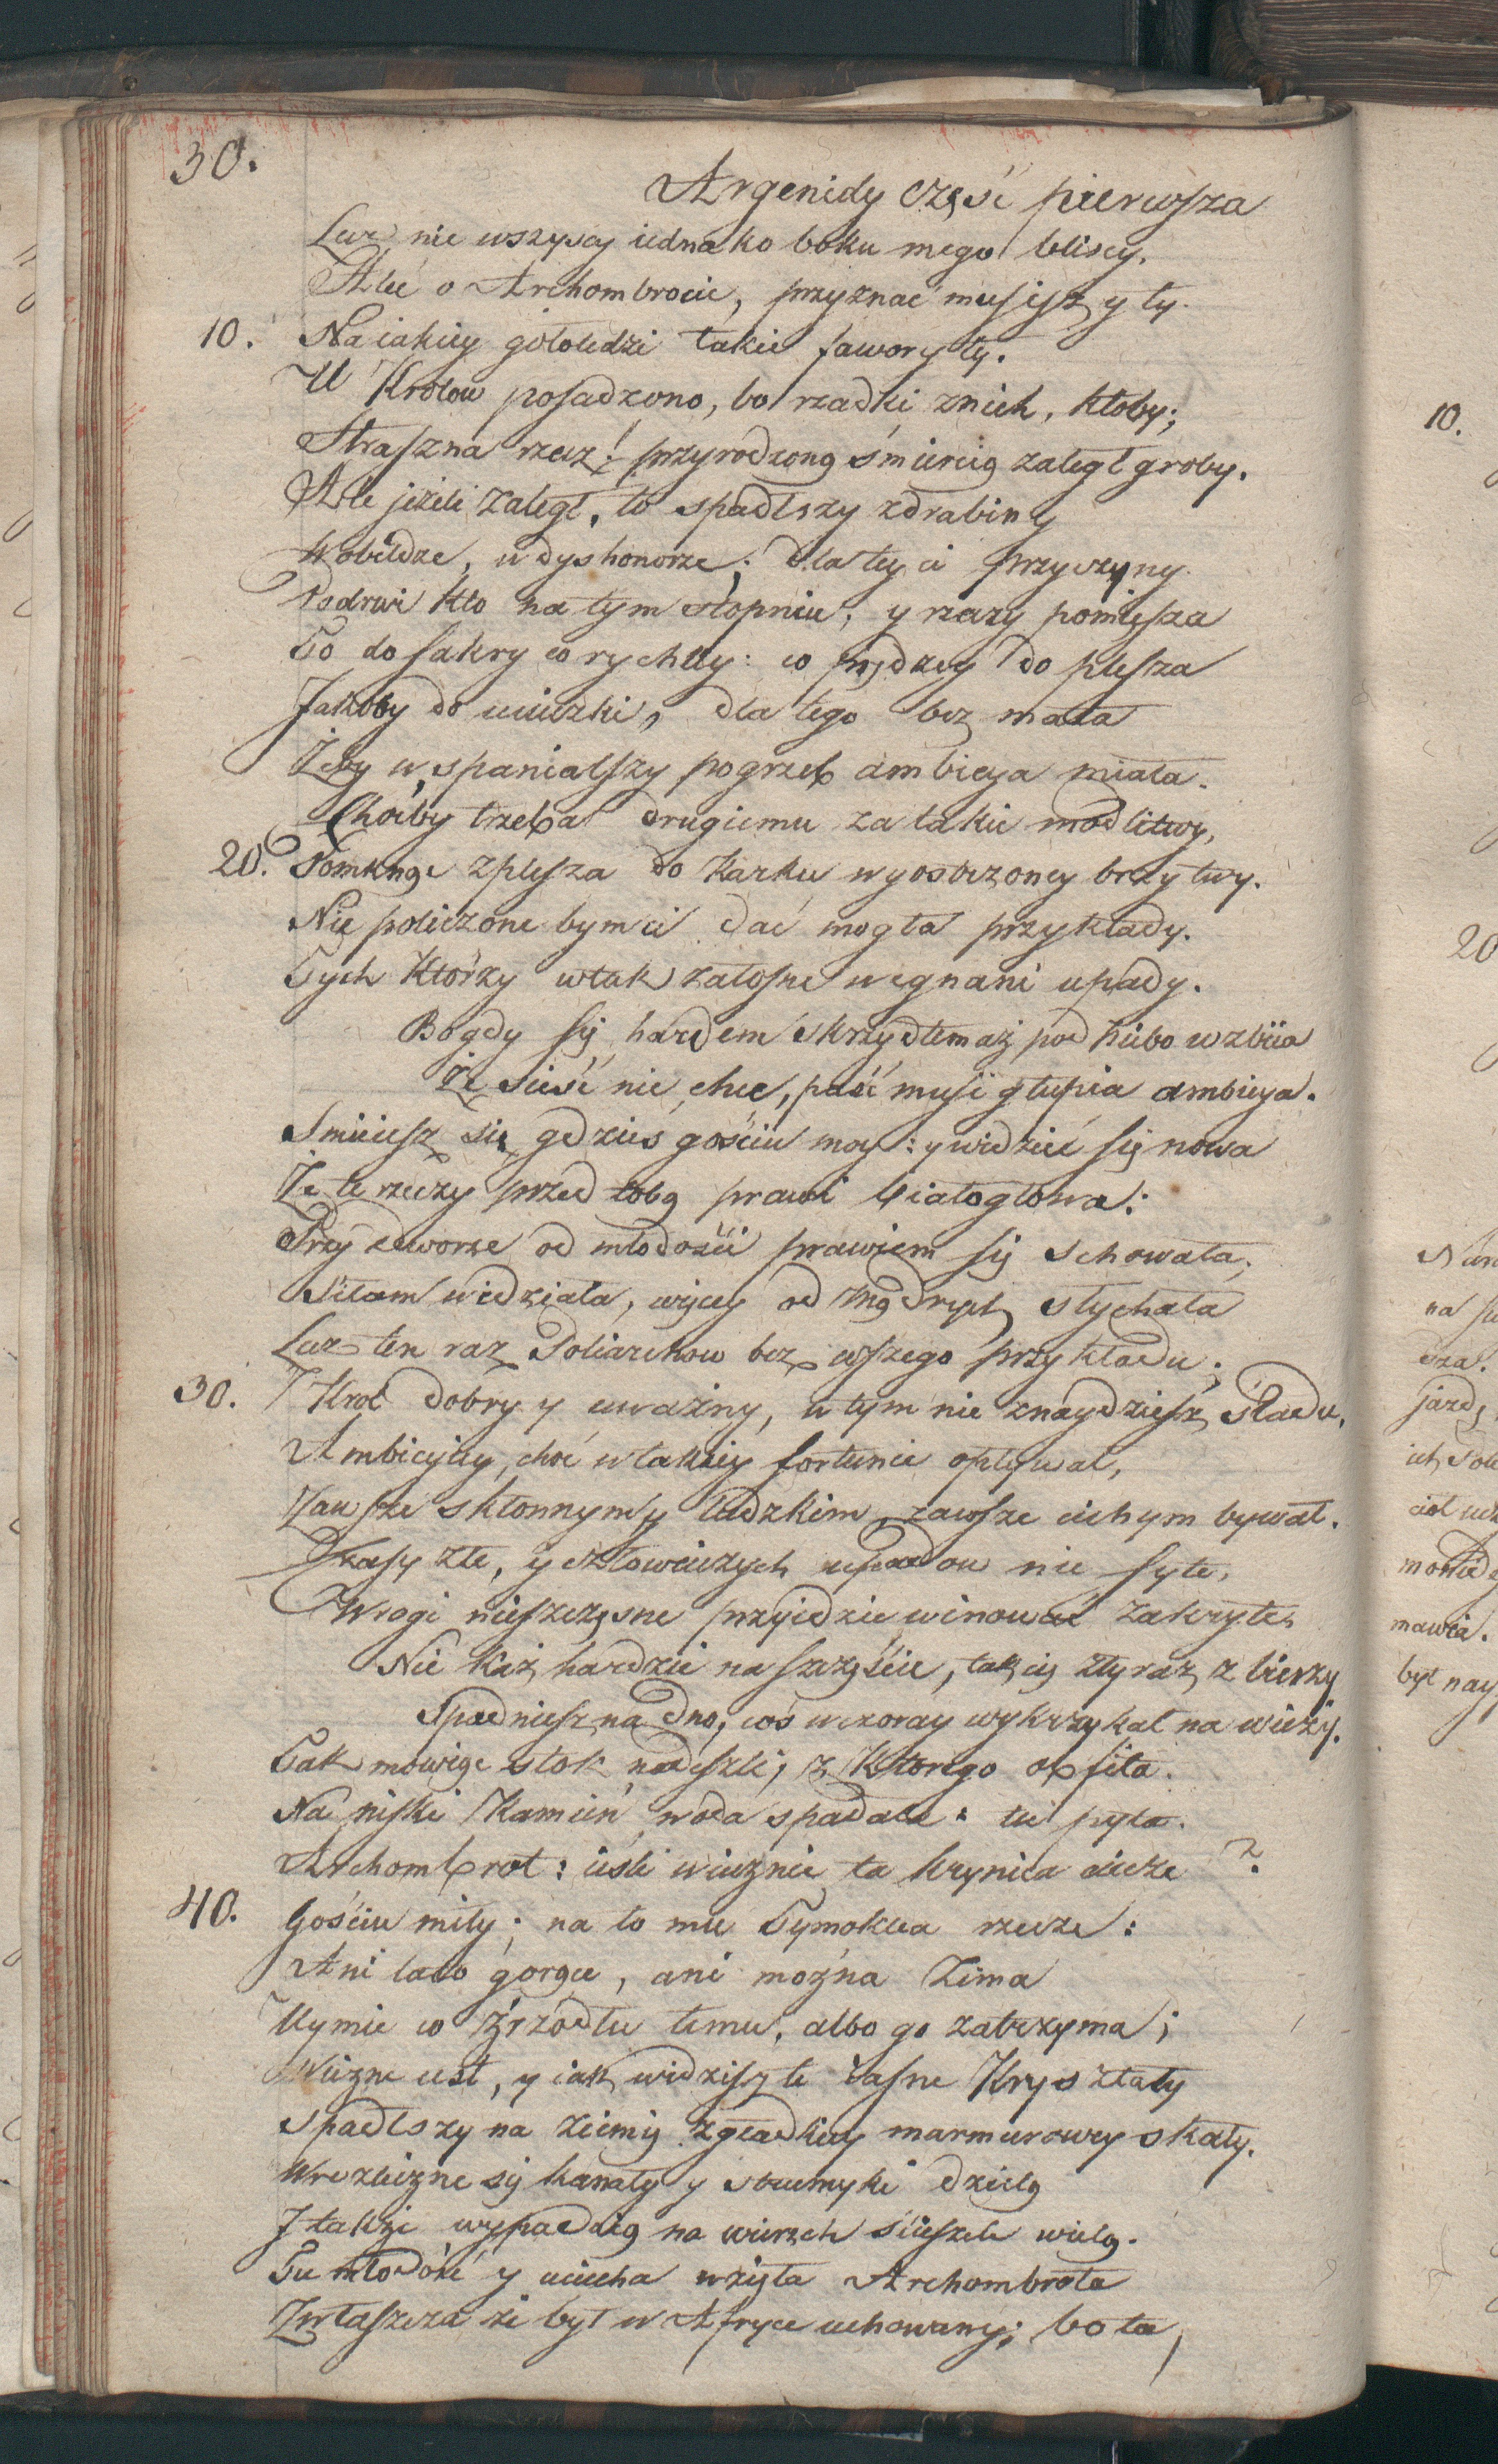 30.
Argenidy część pierwsza
Lecz nie wszyscy iednako boku mego bliscy,
Aleć o Archombrocie, przyznać musisz y ty.
10. Na iakiey gołoledzi takie faworyty.
U Krolow posadzono, bo rzadki znich, ktoby;
Straszna rzecz! przyrodzoną śmiercią zaległ groby.
Ale jeżeli zaległ, to spadlszy zdrabiny
Wobeldze, w dyshonorze; dla tey ci przyczyny
Podrwi kto na tym stopniu; y rzeczy pomięsza
To do sakry co rychley: co prędzey do plesza
Jakoby do ucieczki, dla tego bez mała
Żeby wspanialszy pogrzeb ambicya miała.
Choćby trzeba drugiemu za takie modlitwy,
20. Pomknąc zplesza do karku wyostrzoney brzytwy.
Nie policzone bym ci dać mogła przykłady.
Tych którzy wtak załosne wegnani upady.
Bo gdy się hardem skrzydłem aż pod niebo wzbiia
Że sieść nie chce, paść musi głupia ambicya.
Smieiesz się gdzieś gościu moy: y widzieć się nowa
Że te rzeczy przed tobą prawi białogłowa:
Przy dworze od młodości prawiem się schowała,
Siłam widziała, więcey od mądrych słychała
Lecz ten raz Poliarchow bez wszego przykładu;
30. Krol dobry y uważny, w tym nie znaydziesz śładu,
Ambicyiey, choć w takiey fortunie opływał,
Zawsze skłonnym y ludzkim, zawsze cichym bywał.
Czasy złe, y człowieczych upadow nie syte,
Wrogi nieszczęsne przyidzie winować zakryte,
Nie każ hardzie na szczęście, tak cię zły raz z bierzy
Spadniesz na dno, coś wczoray wykrzykał na wieży.
Tak mowiąc stok nadeszli, z ktorego obfita.
Na niski kamień woda spadała: tu pyta.
Archombrot: ieśli wiecznie ta krynica ciecze?
40. Gościu miły; na to mu Tymoklea rzecze:
Ani lato gorące, ani można Zima
Uymie co źrzódłu temu, albo go zatrzyma;
Wieczne iest, y iak widzisz te iasne Kryształy
Spadlszy na ziemię zgładkiey marmurowey skały.
Wrozliczne się kanały y strumyki dzielą
I także wypadaią na wierzch ścieszek wielą.
Tu młodość y uciecha wzięła Archombrota
Zwłaszcza że był w Afryce uchowany; bo ta,
10.
20